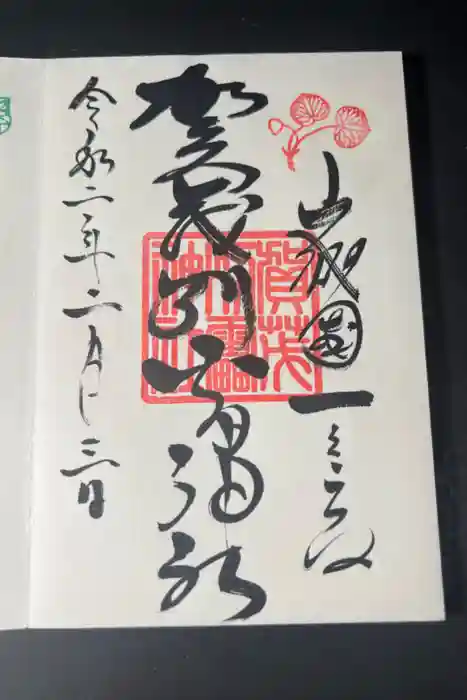 山城國一之宮
賀茂別雷神社
令和二年二月三日
賀茂
別雷
神社